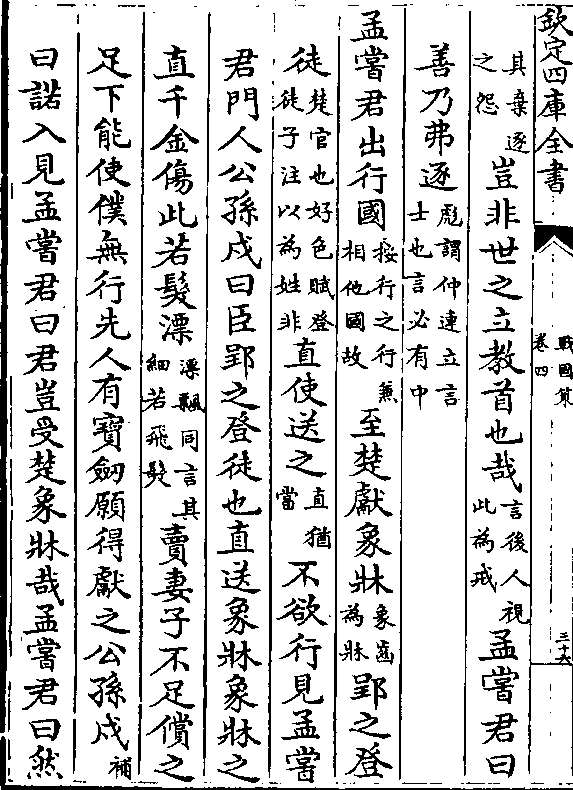 欽定四庫全書
戰國策
卷四
三十六
其棄逐之怨豈非世之立教首也哉言後人視此為戒孟嘗君曰
善乃弗逐彪謂仲連立言士也言必有中
孟嘗君出行國按行之行兼相他國故至楚獻象牀象齒為牀郢之登
徒楚官也好色賦登徒子注以為姓非直使送之直猶當不欲行見孟嘗
君門人公孫戍曰臣郢之登徒也直送象牀象牀之
直千金傷此若髮漂漂飄同言其細若飛髮賣妻子不足償之
足下能使僕無行先人有寶劒願得獻之公孫戍補
曰諾入見孟嘗君曰君豈受楚象牀哉孟嘗君曰然